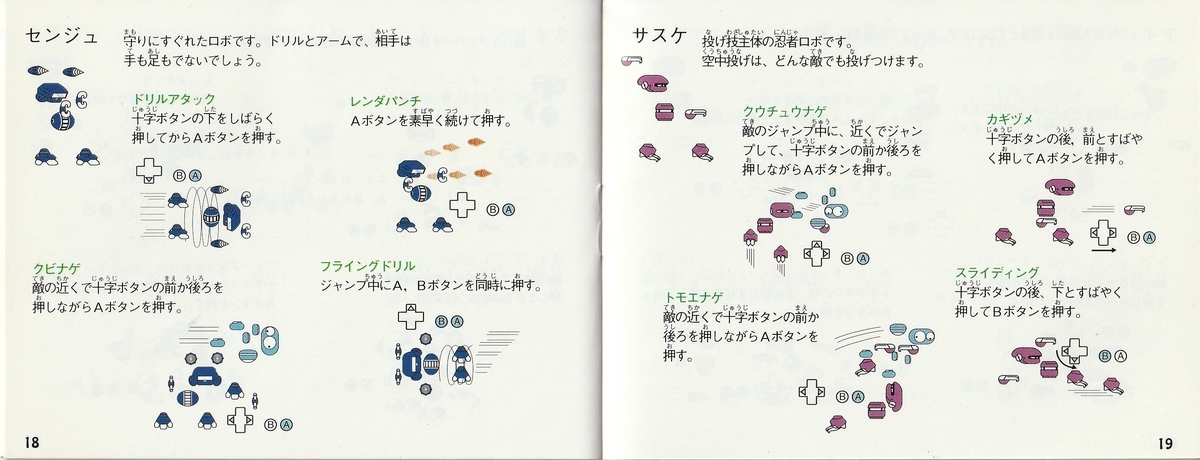 センジュ
守りにすぐれたロボです。ドリルとアームで、相手は
手も足もでないでしょう。
ドリルアタック
十字ボタンの下をしばらく
押してからAボタンを押す。
B A
レンダパンチ
Aボタンを素早く続けて押す。
B A
クビナゲ
敵の近くで十字ボタンの前か後ろを
押しながらAボタンを押す。
B A
フライングドリル
ジャンプ中にA、Bボタンを同時に押す。
B A
18
サスケ
投げ技主体の忍者ロボです。
空中投げは、どんな敵でも投げつけます。
クウチュウナゲ
敵のジャンプ中に、近くでジャン
プして、十字ボタンの前か後ろを
押しながらAボタンを押す。
B A
カギヅメ
十字ボタンの後，前とすばや
く押してAボタンを押す。
B A
トモエナゲ
敵の近くで十字ボタンの前か
後ろを押しながらAボタンを
押す。
B A
スライディング
十字ボタンの後、下とすばやく
押してBボタンを押す。
B A
19